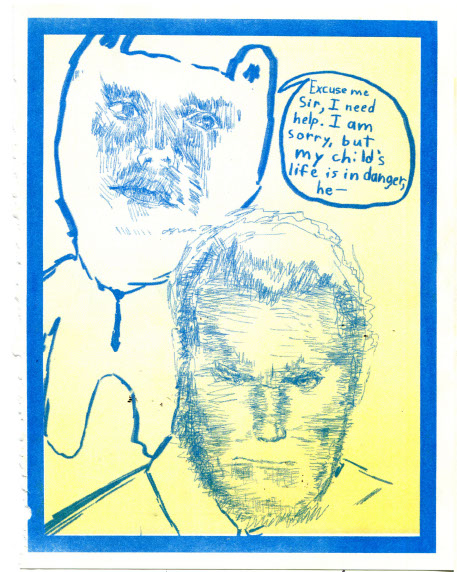 Excuse me
Sir, I need
help. I am
sorry, but
my child's
life is in danger,
he—